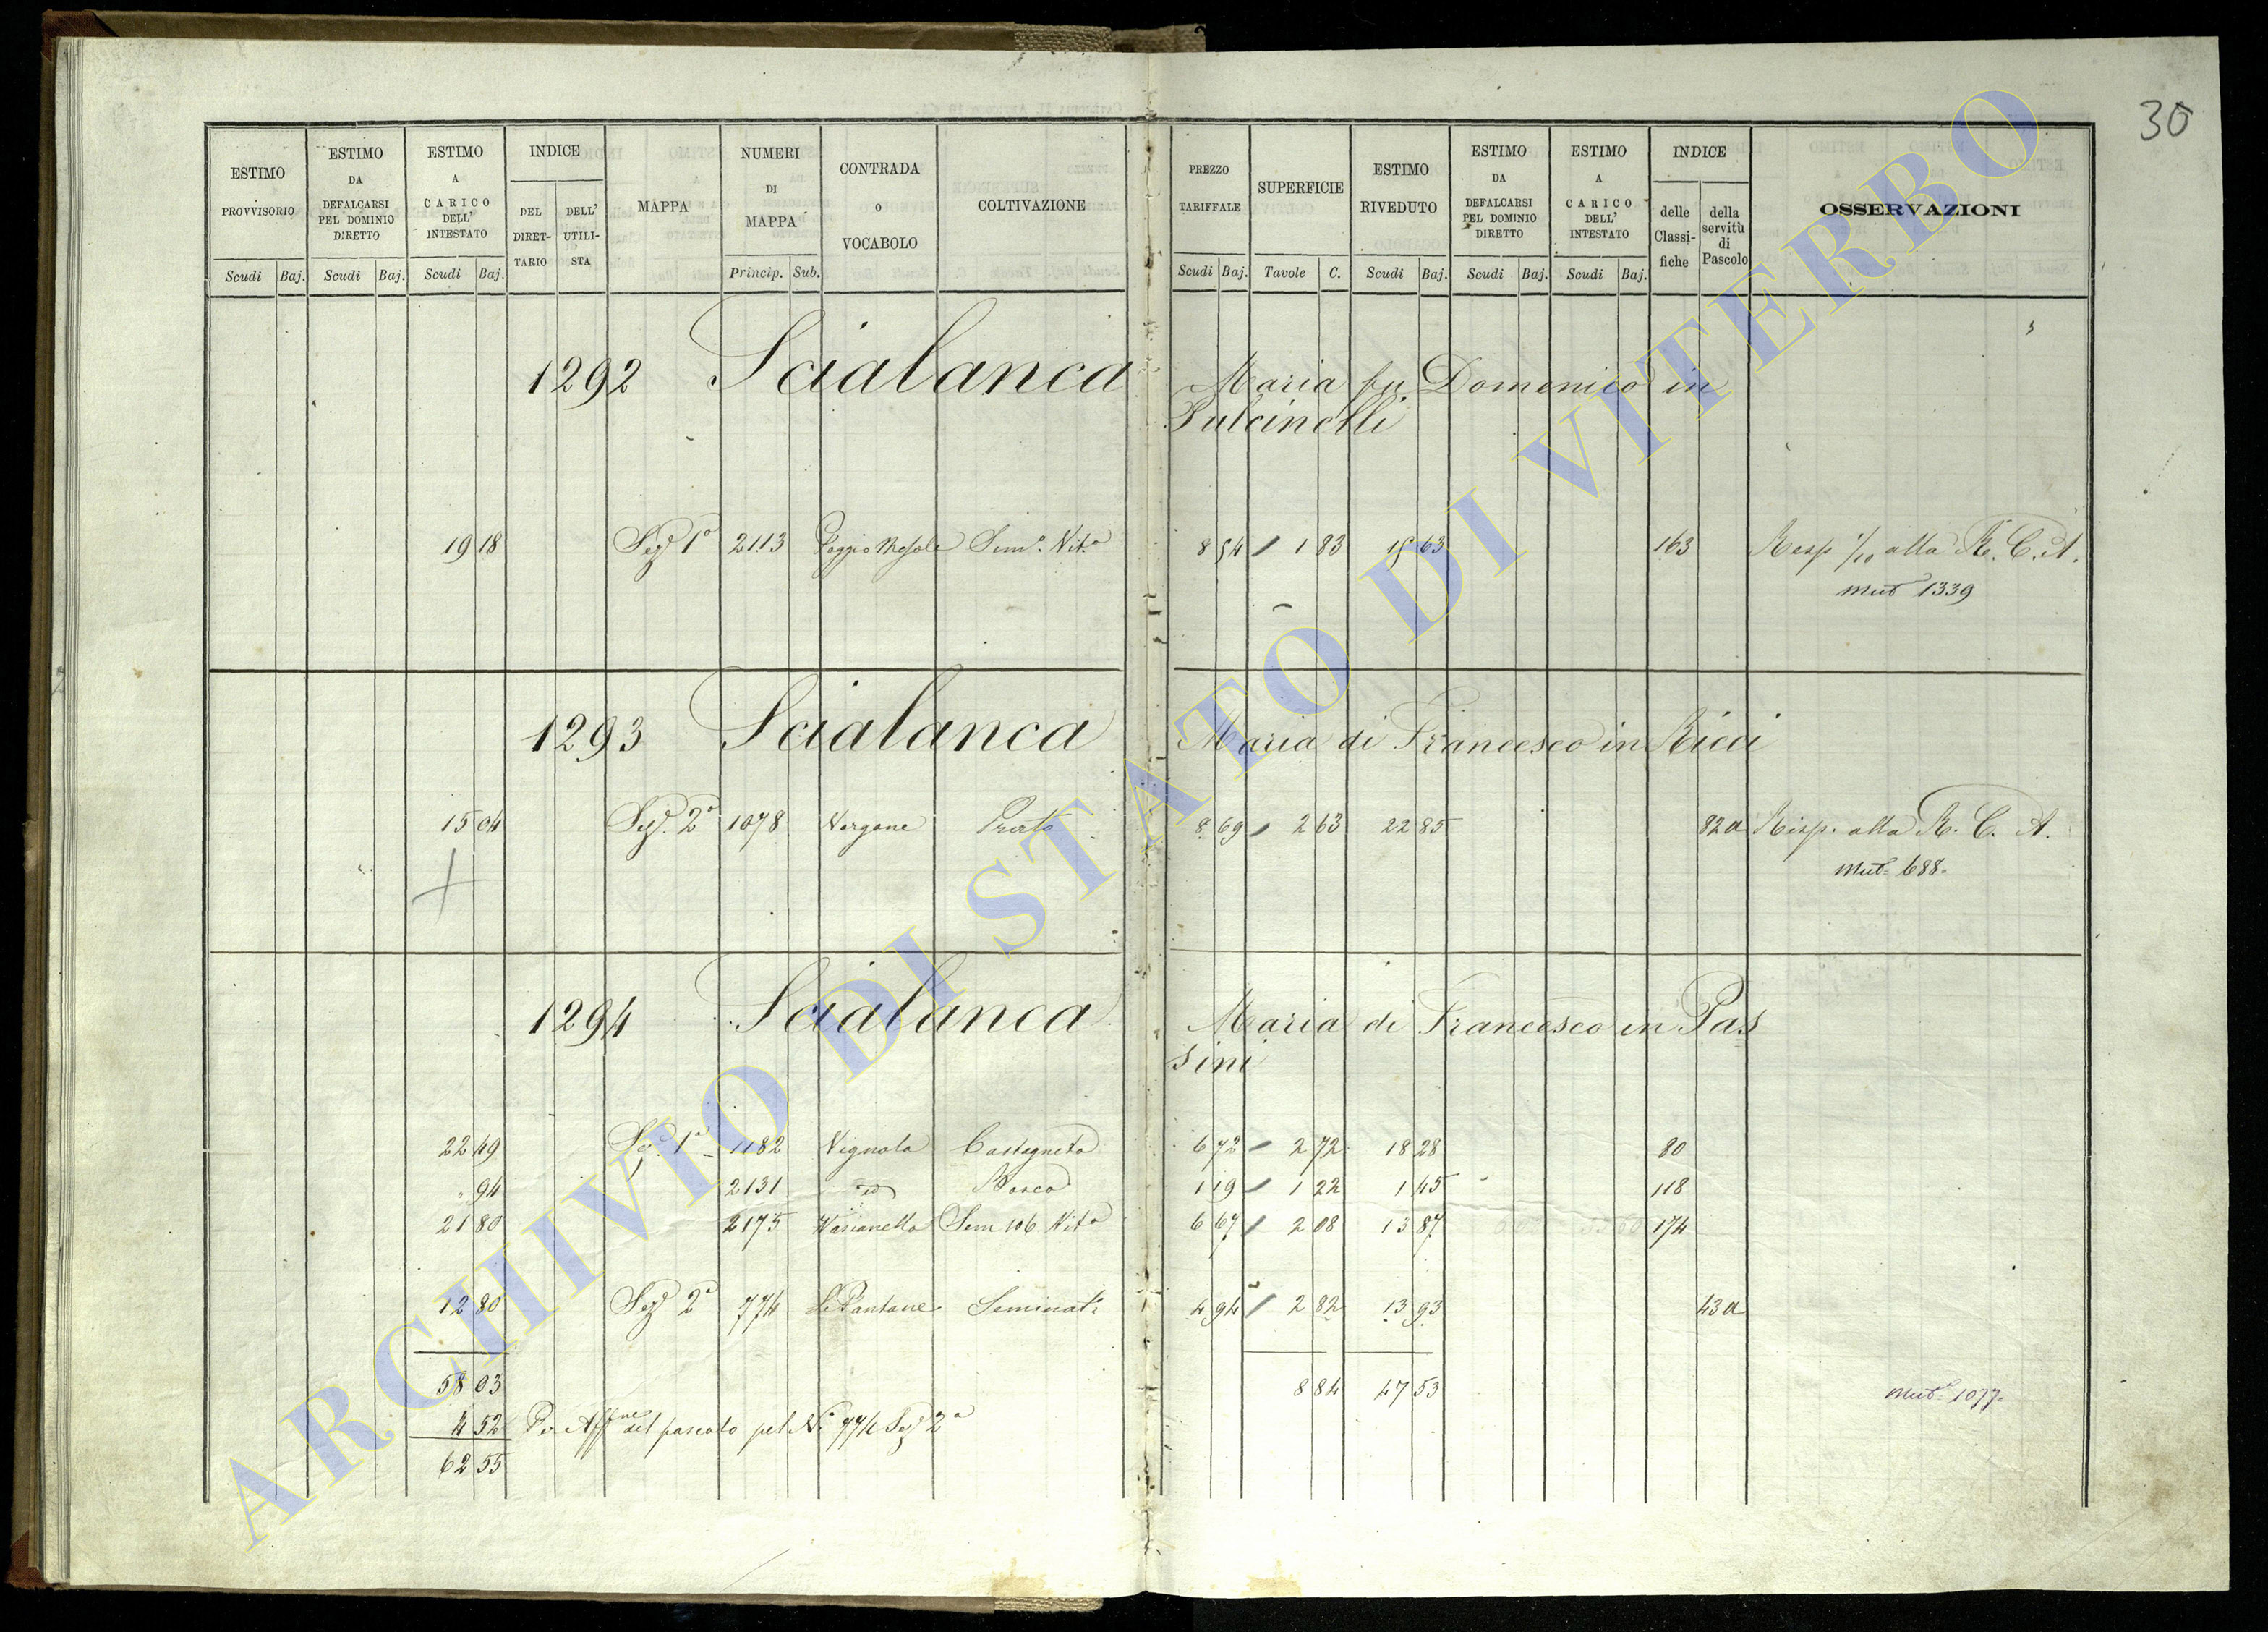 30
ESTIMO PROVVISORIO
Scudi Baj.
ESTIMO DA DEFALCARSI PEL DOMINIO DIRETTO
Scudi Baj.
ESTIMO A CARICO DELL' INTESTATO
Scudi Baj.
INDICE
DEL DIRETTARIO
DELL' UTILISTA
MAPPA
NUMERI DI MAPPA
Princip. Sub.
CONTRADA o VOCABOLO
COLTIVAZIONE
PREZZO TARIFFALE
Scudi Baj.
SUPERFICIE
Tavole C.
ESTIMO RIVEDUTO
Scudi Baj.
ESTIMO DA DEFALCARSI PEL DOMINIO DIRETTO
Scudi Baj.
ESTIMO A CARICO DELL' INTESTATO
Scudi Baj.
INDICE
delle Classifiche
della servitù di Pascolo
OSSERVAZIONI
1292 Scialanca Maria fu Domenico in
Pulcinelli
19 18 Sez.e 1a 2113 Poggio Sem.o Vit.o 8 54 1 83 15 63 163 Resp 1/10 alla R. C. A.
Mut 1339
1293 Scialanca Maria di Francesco in Ricci
15 04 Sez.e 2a 1078 Vergone Prato 8 69 2 63 22 85 82a Risp. alla R. C. A.
Mut. 688.
1294 Scialanca Maria di Francesco in Pas
sini
22 49 Sez.e 1a 1182 Vignola Castagneto 6 72 2 72 18 28 80
" 94 2131 id Bosco 1 19 1 22 1 45 118
21 80 2175 Sem Vit.o 6 67 2 08 13 87 174
12 80 Sez.e 2a 774 Le Pantane Seminat.o 4 94 2 82 13 93 43a
58 03 8 84 47 53 Mut. 1077.
4 52 Per Aff.ne del pascolo pel N.o 774 Sez.e 2a
62 55
ARCHIVIO DI STATO DI VITERBO